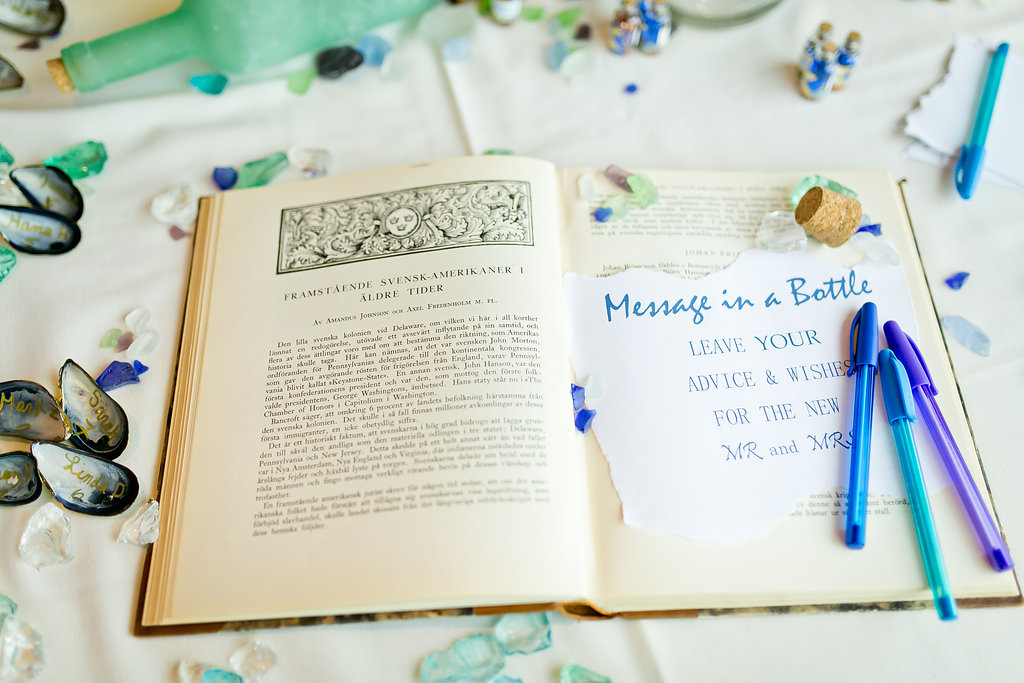 Hana H
Mark
Sara
Linda D
6
FRAMSTÅENDE SVENSK-AMERIKANER I
ÄLDRE TIDER
Av Amandus Johnson och Axel Fredenholm m. fl.
Den lilla svenska kolonien vid Delaware, om vilken vi här i all korthet
lämnat en redogörelse, utövade ett avsevärt inflytande på sin samtid, och
flera av dess ättlingar voro med om att bestämma den riktning, som Amerikas
historia skulle taga. Här kan nämnas, att det var svensken John Morton,
ordföranden för Pennsylvanias delegerade till den kontinentala kongressen,
som gav den avgörande rösten för frigörelsen från England, varav Pennsyl-
vania blivit kallat »Keystone-State». En annan svensk, John Hanson, var den
första konfederationens president och var den, som mottog den förste folk-
valde presidenten, George Washington, ämbetsed. Hans staty står nu i »The
Chamber of Honor» i Capitolium i Washington.
Bancroft säger, att omkring 6 procent av landets befolkning härstamma från
den svenska kolonien. Det skulle i så fall finnas millioner avkomlingar av dessa
första immigranter, en icke obetydlig siffra.
Det är ett historiskt faktum, att svenskarna i hög grad bidrogo att lägga grun-
den till såväl den andliga som den materiella odlingen i tre stater: Delaware,
Pennsylvania och New Jersey. Detta skedde på ett helt annat sätt än vad fallet
var i Nya Amsterdam, Nya England och Virginia, där indianerna mördades under
årslånga fejder och häxbål lyste på torgen. Svenskarna delade sitt bröd med de
röda männen och fingo mottaga verkligt rörande bevis på dessas vänskap och
trofasthet.
En framstående amerikansk jurist skrev för någon tid sedan, att om det ame-
rikanska folket hade förstått att tillägna sig svenskarnas
förbjöd slavhandel, skulle landet skonats från det långvariga
dess hemska följder.
JOHAN
Message in a Bottle
LEAVE YOUR
ADVICE & WISHES
FOR THE NEW
MR and MRS
svensk
av denne så
hästar ur stall.